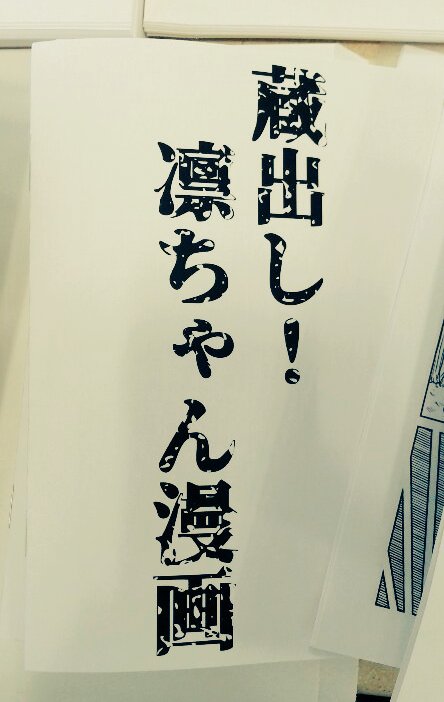 蔵出し!
凛ちゃん漫画